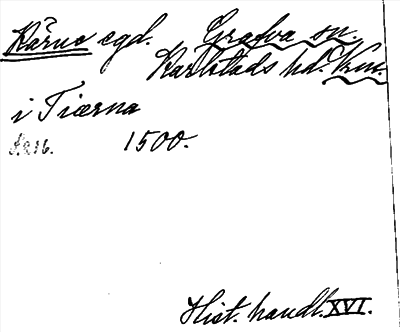 Kärne egd. Grafva sn.
Karlstads hd. Vrm.
i Tiærna
S. 216. 1500.
Hist. handl. XVI.